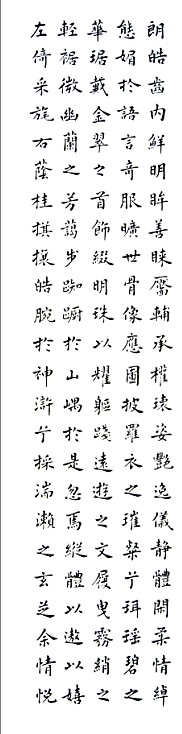 朗皓齒內鮮明眸善睞靨輔承權瓌姿艷逸儀靜體閑柔情綽
態媚於語言奇服曠世骨像應圖披羅衣之璀粲兮珥瑤碧之
華琚戴金翠之首飾綴明珠以耀軀踐遠遊之文履曳霧綃之
輕裾微幽蘭之芳藹步踟躕於山嵎於是忽焉縱體以遨以嬉
左倚采旄右蔭桂旗攘皓腕於神滸兮採湍瀨之玄芝余情悅